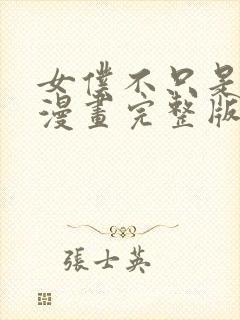 女僕不只是
漫畫完整版
張士英